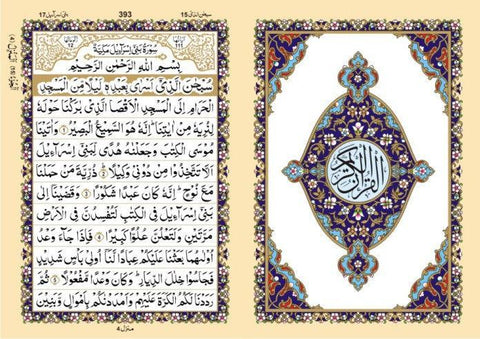 سُبْحٰنَ الَّذِیْ 15
393
بنی اسرآءیل 17
سُوْرَةُ بَنِیْۤ اِسْرَآءِیْلَ
بِسْمِ اللّٰهِ الرَّحْمٰنِ الرَّحِیْمِ
سُبْحٰنَ الَّذِیْۤ اَسْرٰی بِعَبْدِهٖ لَیْلًا مِّنَ الْمَسْجِدِ
الْحَرَامِ اِلَی الْمَسْجِدِ الْاَقْصَا الَّذِیْ بٰرَكْنَا حَوْلَهٗ
لِنُرِیَهٗ مِنْ اٰیٰتِنَا ؕ اِنَّهٗ هُوَ السَّمِیْعُ الْبَصِیْرُ ۱ وَاٰتَیْنَا
مُوْسَی الْكِتٰبَ وَجَعَلْنٰهُ هُدًی لِّبَنِیْۤ اِسْرَآءِیْلَ
اَلَّا تَتَّخِذُوْا مِنْ دُوْنِیْ وَكِیْلًا ۲ ذُرِّیَّةَ مَنْ حَمَلْنَا
مَعَ نُوْحٍ ؕ اِنَّهٗ كَانَ عَبْدًا شَكُوْرًا ۳ وَقَضَیْنَاۤ اِلٰی
بَنِیْۤ اِسْرَآءِیْلَ فِی الْكِتٰبِ لَتُفْسِدُنَّ فِی الْاَرْضِ
مَرَّتَیْنِ وَلَتَعْلُنَّ عُلُوًّا كَبِیْرًا ۴ فَاِذَا جَآءَ وَعْدُ
اُوْلٰىهُمَا بَعَثْنَا عَلَیْكُمْ عِبَادًا لَّنَاۤ اُولِیْ بَاْسٍ شَدِیْدٍ
فَجَاسُوْا خِلٰلَ الدِّیَارِ ؕ وَكَانَ وَعْدًا مَّفْعُوْلًا ۵ ثُمَّ
رَدَدْنَا لَكُمُ الْكَرَّةَ عَلَیْهِمْ وَاَمْدَدْنٰكُمْ بِاَمْوَالٍ وَّبَنِیْنَ
منزل 4
القرآن الكريم